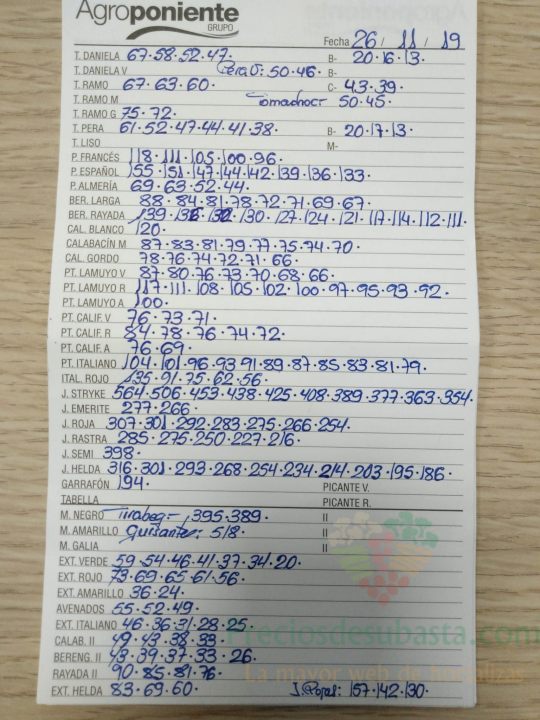 Agroponiente
GRUPO
Fecha 26 / 11 / 19
T. DANIELA 67·58·52·47· B- 20·16·13·
T. DANIELA V Pera V: 50·46· B-
T. RAMO 67·63·60· C- 43·39·
T. RAMO M 50·45·
T. RAMO G 75·72·
T. PERA 61·52·47·44·41·38· B- 20·17·13·
T. LISO M-
P. FRANCÉS 118·111·105·100·96·
P. ESPAÑOL 155·151·147·144·142·139·136·133·
P. ALMERÍA 69·63·52·44·
BER. LARGA 88·84·81·78·72·71·69·67·
BER. RAYADA 139·136·132·130·127·124·121·117·114·112·111·
CAL. BLANCO 120·
CALABACÍN M 87·83·81·79·77·75·74·70·
CAL. GORDO 78·76·74·72·71·66·
PT. LAMUYO V 87·80·76·73·70·68·66·
PT. LAMUYO R 117·111·108·105·102·100·97·95·93·92·
PT. LAMUYO A 100·
PT. CALIF. V 76·73·71·
PT. CALIF. R 84·78·76·74·72·
PT. CALIF. A 76·69·
PT. ITALIANO 104·101·96·93·91·89·87·85·83·81·79·
ITAL. ROJO 135·91·75·62·56·
J. STRYKE 564·506·453·438·425·408·389·377·363·354·
J. EMERITE 277·266·
J. ROJA 307·301·292·283·275·266·254·
J. RASTRA 285·275·250·227·216·
J. SEMI 398·
J. HELDA 316·301·293·268·254·234·214·203·195·186·
GARRAFÓN 194· PICANTE V.
TABELLA PICANTE R.
M. NEGRO Tirabeq- 395·389· II
M. AMARILLO Guisante: 518· II
M. GALIA II
EXT. VERDE 59·54·46·41·37·34·20·
EXT. ROJO 73·69·65·61·56·
EXT. AMARILLO 36·24·
AVENADOS 55·52·49·
EXT. ITALIANO 46·36·31·28·25·
CALAB. II 49·43·38·33·
BERENG. II 43·39·37·33·26·
RAYADA II 90·85·81·76·
EXT. HELDA 83·69·60· 157·142·130·
Preciosdesubasta.com
La mayor web de hortalizas